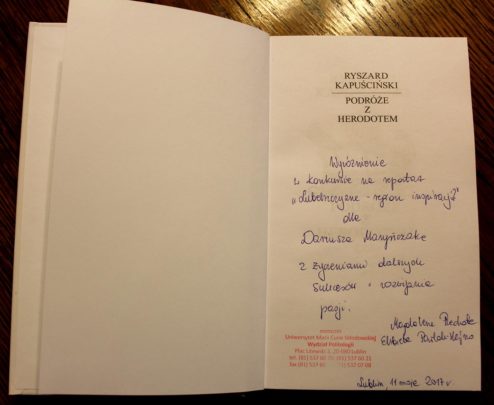 RYSZARD
KAPUŚCIŃSKI
PODRÓŻE
Z
HERODOTEM
Wyróżnienie
w konkursie na reportaż
"Lubelszczyzna - region inspiracji"
dla
Dariusza
z życzeniami dalszych
sukcesów i rozwijania
pasji.
Magdalena
Elżbieta
Uniwersytet Marii Curie Skłodowskiej
Wydział Politologii
Plac Litewski 3, 20-080 Lublin
tel. (81) 537 60
fax (81) 537
Lublin, 11 maja 2017 r.